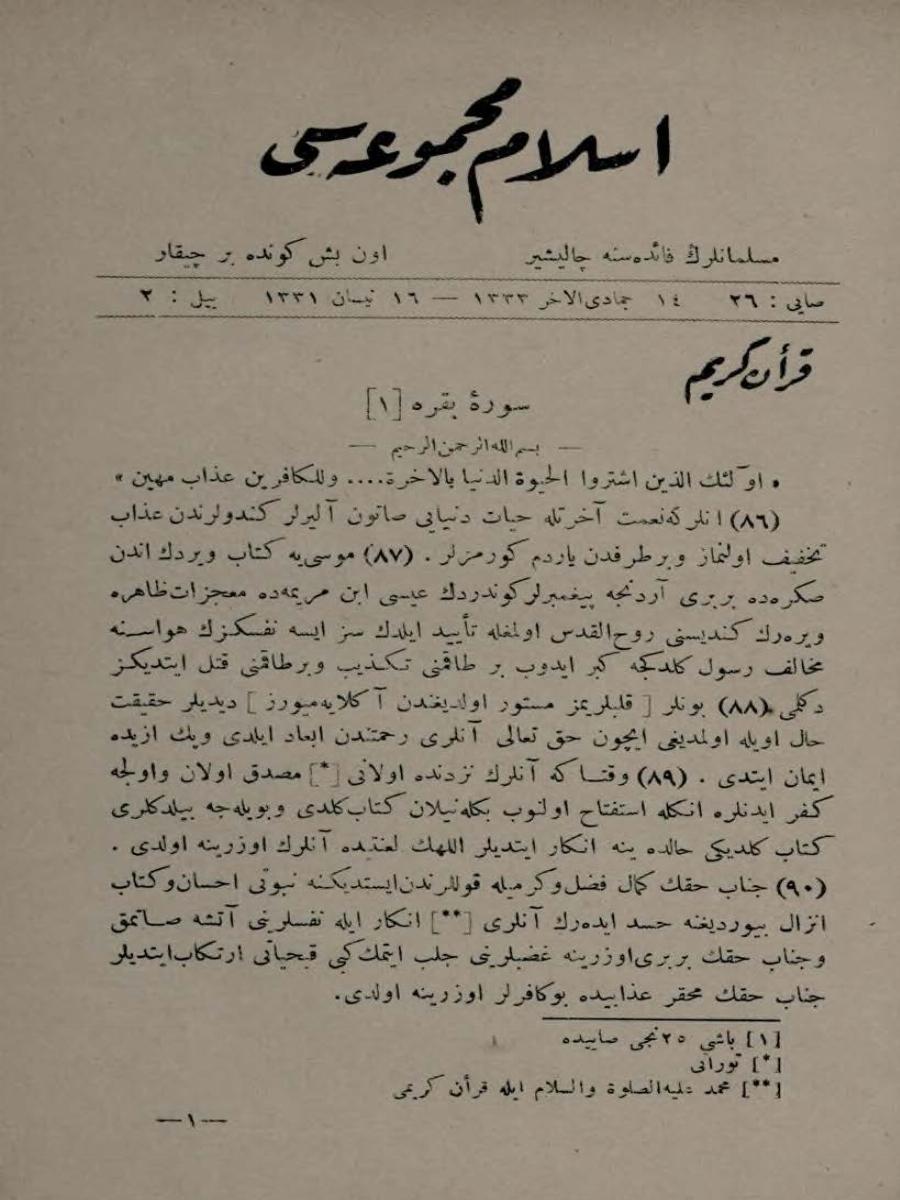 اسلام مجموعه‌سی
مسلمانلرڭ فائده‌سنه چالیشیر اون بش كونده بر چیقار
صایی : ٢٦ ١٤ جمادی‌الاخر ١٣٣٣ — ١٦ نیسان ١٣٣١ ییل : ٢
قرأن كریم
سورهٔ بقره [١]
— بسم‌الله‌الرحمن‌الرحیم —
« اولٓئك الذین اشتروا الحیوة الدنیا بالاخرة.... وللكافرین عذاب مهین »
(٨٦) انلر كه نعمت آخرتله حیات دنیایی صاتون آلیرلر كندولرندن عذاب
تخفیف اولنماز وبر طرفدن یاردم كورمزلر . (٨٧) موسی‌یه كتاب ویردك اندن
صكره‌ده بربری آردنجه پیغمبرلر كوندردك عیسی ابن مریمه‌ده معجزات‌ظاهره
ویره‌رك كندیسنی روح‌القدس اولمغله تأیید ایلدك سز ایسه نفسكزك هواسـنه
مخالف رسول كلدكجه كبر ایدوب بر طاقمنی تكذیب وبرطاقمنی قتل ایتدیكز
دكلمی (٨٨) بونلر [ قلبلریمز مستور اولدیغندن آكلایه‌میورز ] دیدیلر حقیقت
حال اویله اولمدیغی ایچون حق تعالی آنلری رحمتندن ابعاد ایلدی وپك ازیده
ایمان ایتدی . (٨٩) وقتـاكه آنلرك نزدنده اولانی [*] مصدق اولان واولجه
كفر ایدنلره انكله استفتاح اولنوب بكله‌نیلان كتاب‌كلدی وبویله‌جه بیلدكلری
كتاب كلدیكی حالده ینه انكار ایتدیلر اللهك لعنتیده آنلرك اوزرینه اولدی .
(٩٠) جناب حقك كمال فضل‌وكرمیله قوللرندن‌ایستدیكنه نبوتی احسان‌وكتاب
انزال بیوردیغنه حسد ایده‌رك آنلری [**] انكار ایله نفسلرینی آتشه صـاتمق
وجناب حقك بربری‌اوزرینه غضبلرینی جلب ایتمك‌كبی قبحیاتی ارتكاب‌ایتدیلر
جناب حقك محقر عذابیده بوكافرلر اوزرینه اولدی.
[١] باشی ٢٥نجی صاییده
[*] توراتی
[**] محمد علیه‌الصلوة والسلام ایله قرأن كریمی
—١—